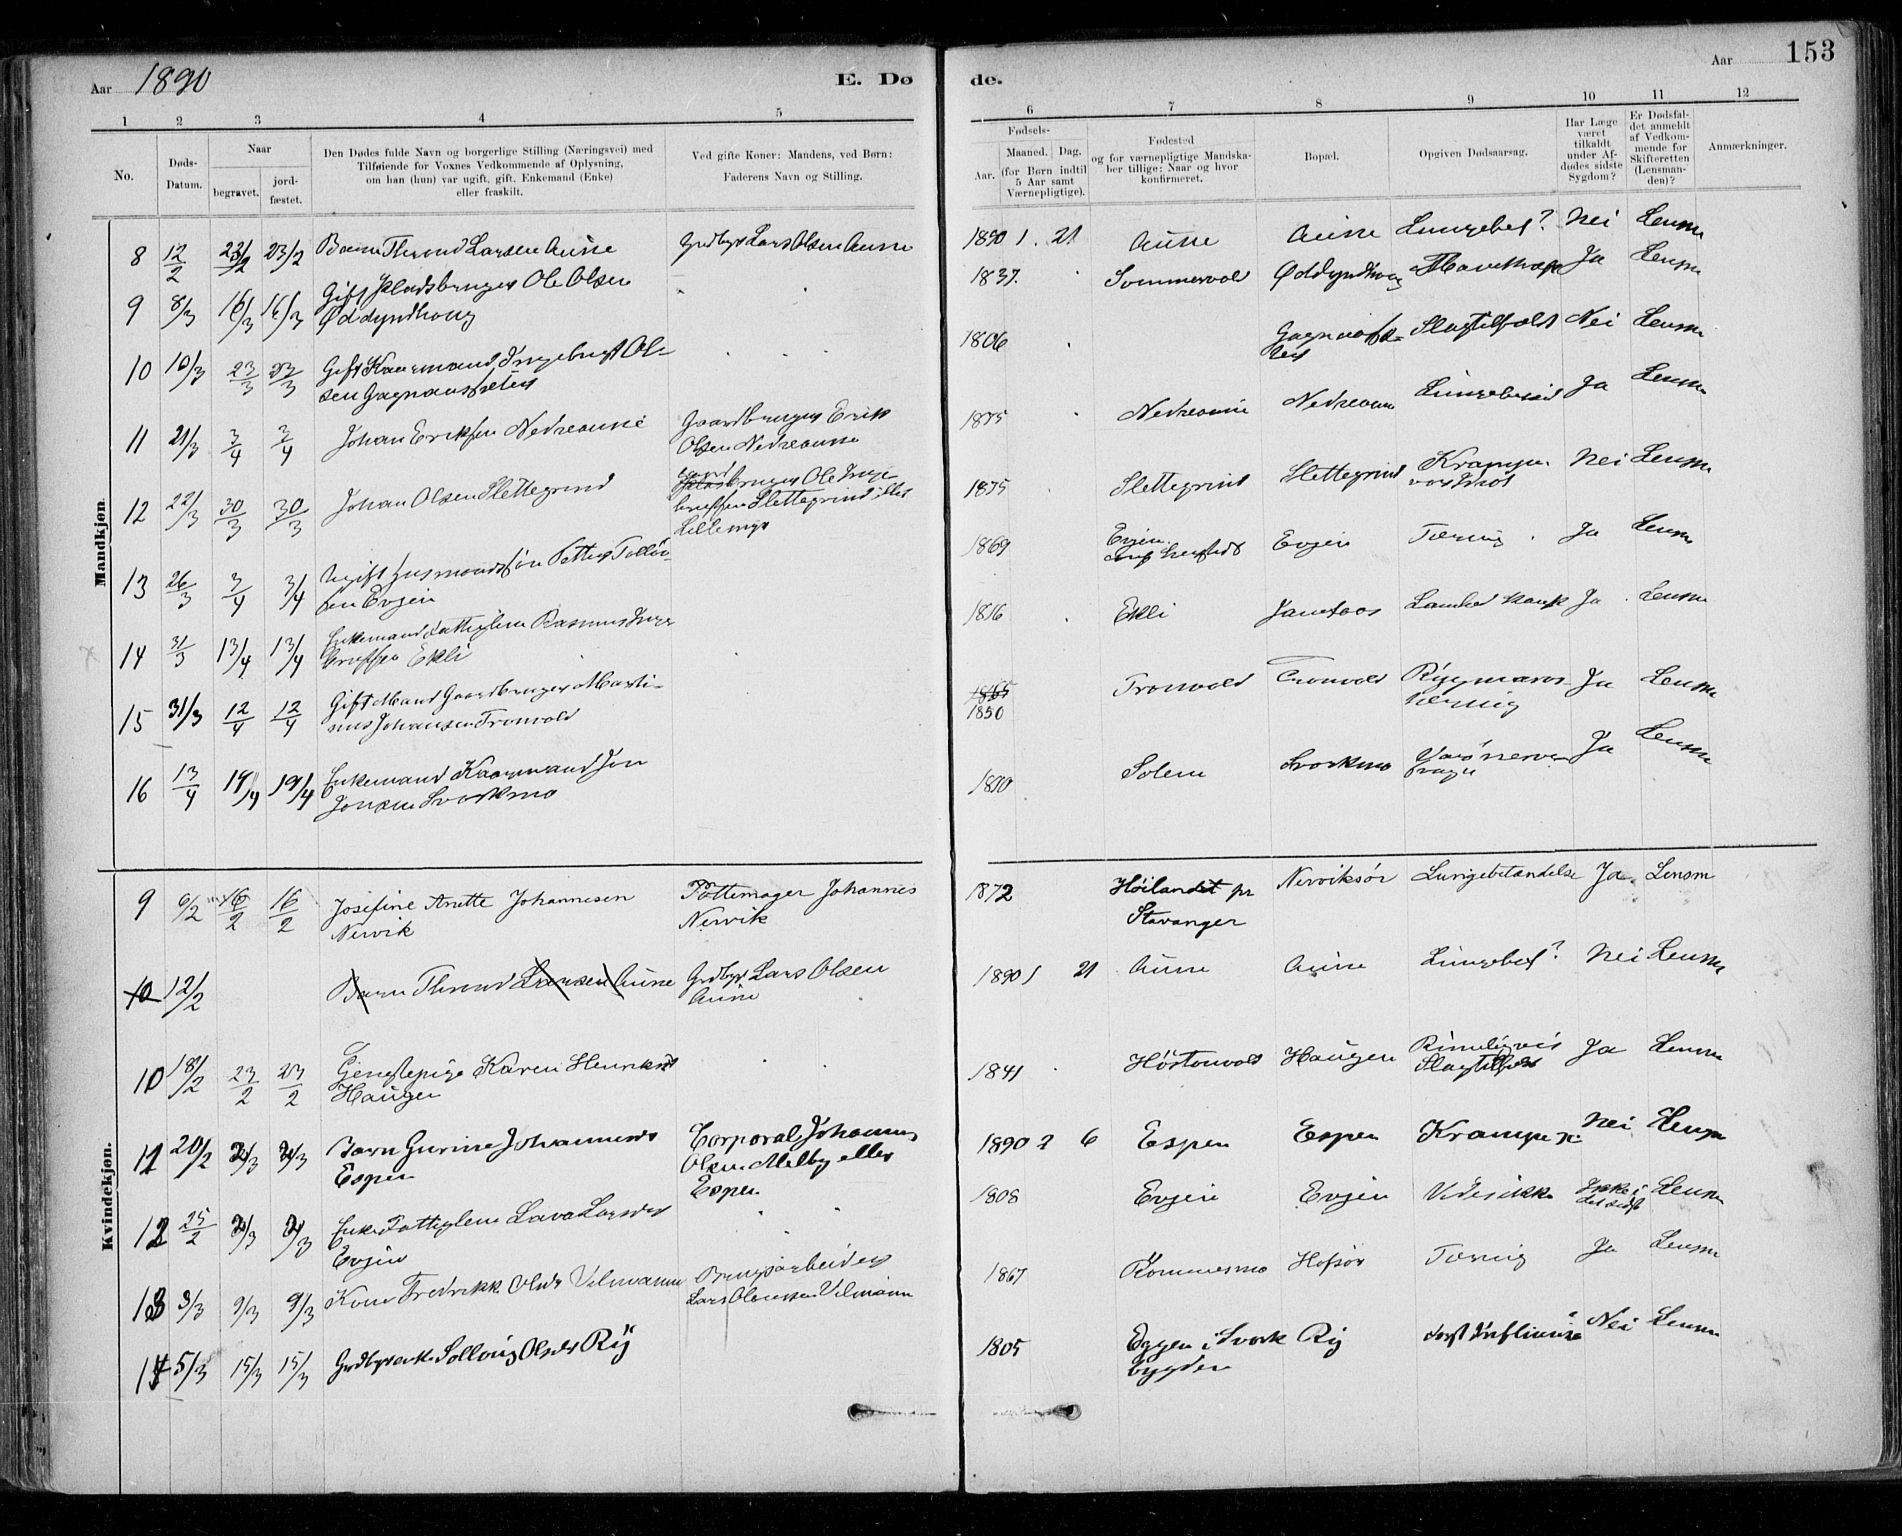 Aar 1890 E. Dø
1 2 3 4 5
No.
Døds-
Datum.
Naar
begravet.
jord-
fæstet.
Den Dødes fulde Navn og borgerlige Stilling (Næringsvei) med
Tilføiende for Voxnes Vedkommende af Oplysning,
om han (hun) var ugift, gift, Enkemand (Enke)
eller fraskilt.
Ved gifte Koner: Mandens, ved Børn:
Faderens Navn og Stilling.
Mandkjøn
8 12/2 23/2 23/2 Barn Thrond Larsen Aune Grdbr Lars Olsen Aune
9 8/3 16/3 16/3 Gift Pladsbruger Ole Olsen
Øddyndhaug
10 10/3 23/3 23/3 Gift Kaarmand Ingebrigt Ol-
sen Gagnaassæter
11 21/3 3/4 3/4 Johan Eriksen Nedreaune Gaardbruger Erik
Olsen Nedreaune
12 22/3 30/3 30/3 Johan Olsen Slettegrind Gaard
bruger Ole Inge-
brigtsen Slettegrind eller
Lillemyr
13 26/3 3/4 3/4 Ugift Husmandssøn Petter
sen Evjen
14 31/3 13/4 13/4 Enkemand Fattiglem Rasmus Inge
brigtsen Ekli
15 31/3 12/4 12/4 Gift Mand Gaardbruger Marti-
nus Johansen Tronvold
16 13/4 19/4 19/4 Enkemand Kaarmand Jon
Jonsen Svorkmo
Kvindekjøn.
9 6/2 16/2 16/2 Josefine Anette Johannesen Pottemager Johannes
Nervik Nervik
10 12/2 Barn Thrond Larsen Aune Grdbr Lars Olsen
Aune
10 18/2 23/2 23/2 Gjenstepige Karen Henriksd
Haugen
11 20/2 2/3 2/3 Barn Gurine Johannesdr Corporal Johannes
Espen Olsen Melby eller
Espen
12 25/2 2/3 2/3 Enke Fattiglem Lava Larsdr
Evjen
13 3/3 9/3 9/3 Kone Fredrikke Olsdr Velmann Brugsarbeider
Lars Velmann
14 5/3 15/3 15/3 Grdbrenke Solloug Olsdr Ry
de. Aar 153
6 7 8 9 10 11 12
Fødsels-
Aar. Maaned. Dag.
(for Børn indtil
5 Aar samt
Værnepligtige).
Fødested
og for værnepligtige Mandska-
ber tillige: Naar og hvor
konfirmeret.
Bopæl.
Opgiven Dødsaarsag.
Har Læge
været
tilkaldt
under Af-
dødes sidste
Sygdom?
Er Dødsfal-
det anmeldt
af Vedkom-
mende for
Skifteretten
(Lensman-
den)?
Anmærkninger.
1890 1. 21 Aune Aune Lungebet? Nei Lensm
1837. Sommervold Øddyndhaug Mavekræft Ja Lensm
1806 Gagnaassæ-
ter Slagtilfæld Nei Lensm
1875 Nedreaune Nedreaune Ja Lensm
1875 Slettegrind Slettegrind Krampe Nei Lensm
1869 Evjen Evjen Tæring Ja Lensm
1816 Ekli Ja Lensm
1865
1850 Tronvold Tronvold Rygmarvs Ja Lensm
Solem Svorkmo Ja Lensm
1872 Høilandet pr Nerviksør Lungebetændelse Ja Lensm
Stavanger
1890 1 21 Aune Aune Lungebet? Nei Lensm
1841 Høstonvold Haugen Rimeligvis Ja Lensm
Slagtilfæld
1890 2 6 Espen Espen Krampe Nei Lensm
1808 Evjen Evjen Vides ikke Ikke i Lensm
det sidste
1867 Rømmesmo Hofsør Tæring Ja Lensm
1805 Eggen i Svork Ry Influensa Nei Lensm
bygden